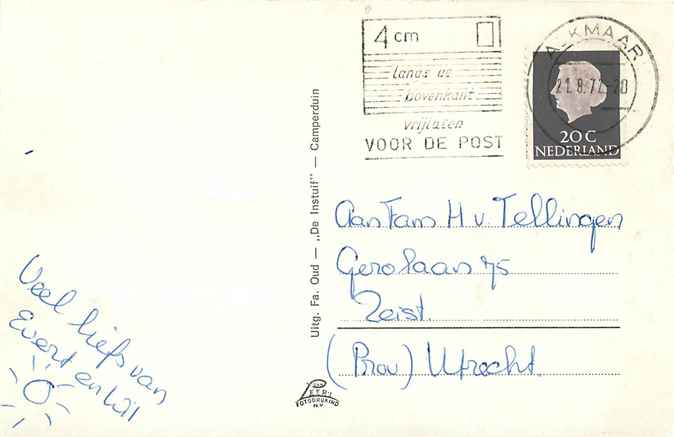 4 cm
langs de
bovenkant
vrijlaten
VOOR DE POST
ALKMAAR
21.8.72.-20
20 C
NEDERLAND
Uitg. Fa. Oud — „De Instuif" — Camperduin
Aan Fam H v. Tellingen
Gerolaan 75
Zeist.
(Prov) Utrecht.
Veel liefs van
Evert en Wil
VAN LEER'S
FOTODRUKIND
N.V.